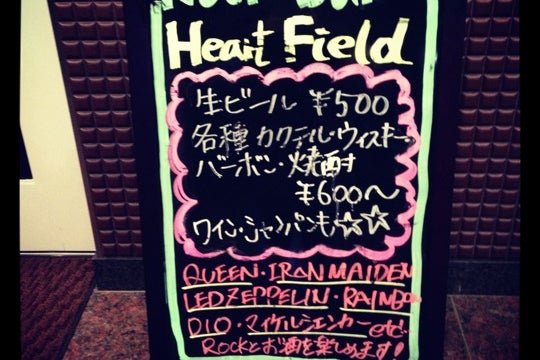 Rock Bar
Heart Field
生ビール ¥500
各種 カクテル・ウィスキー
バーボン・焼酎
¥600〜
ワイン・シャンパンも☆☆
QUEEN・IRON MAIDEN
LED ZEPPELIN・RAINBOW
DIO・マイケルシェンカー etc..
Rockとお酒を楽しめます!